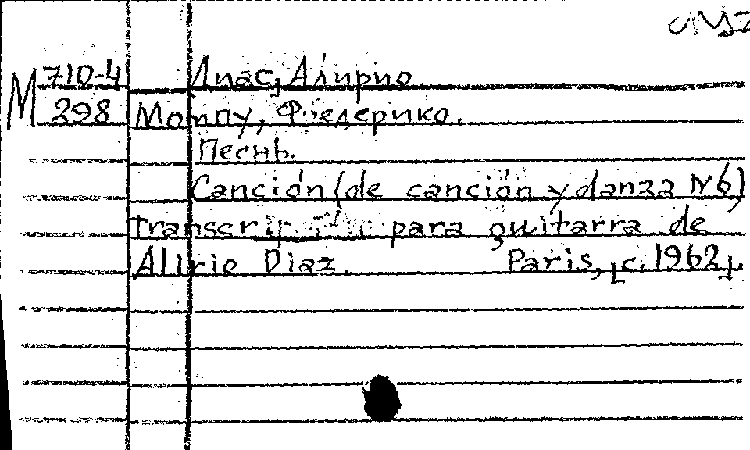 М 710-4
298
Диас, Алирио
Момпу, Федерико.
Песнь.
Canción (de canción y danza №6)
Transcripción para guitarra de
Alirio Diaz. Paris, [c. 1962].